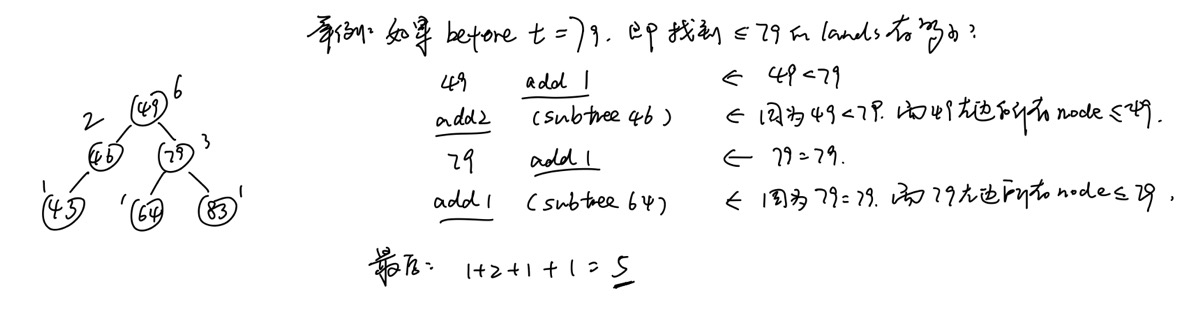 举例: 如果 before t = 79. 即找到 ≤ 79 的 lands 有多少?
49 add 1 ← 49 < 79
add 2 (subtree 46) ← 因为 49 < 79. 而 49 左边所有 node ≤ 49.
79 add 1 ← 79 = 79.
add 1 (subtree 64) ← 因为 79 = 79. 而 79 左边所有 node ≤ 79.
最后: 1 + 2 + 1 + 1 = 5
49 6
2 46 79 3
1 43 1 64 83 1